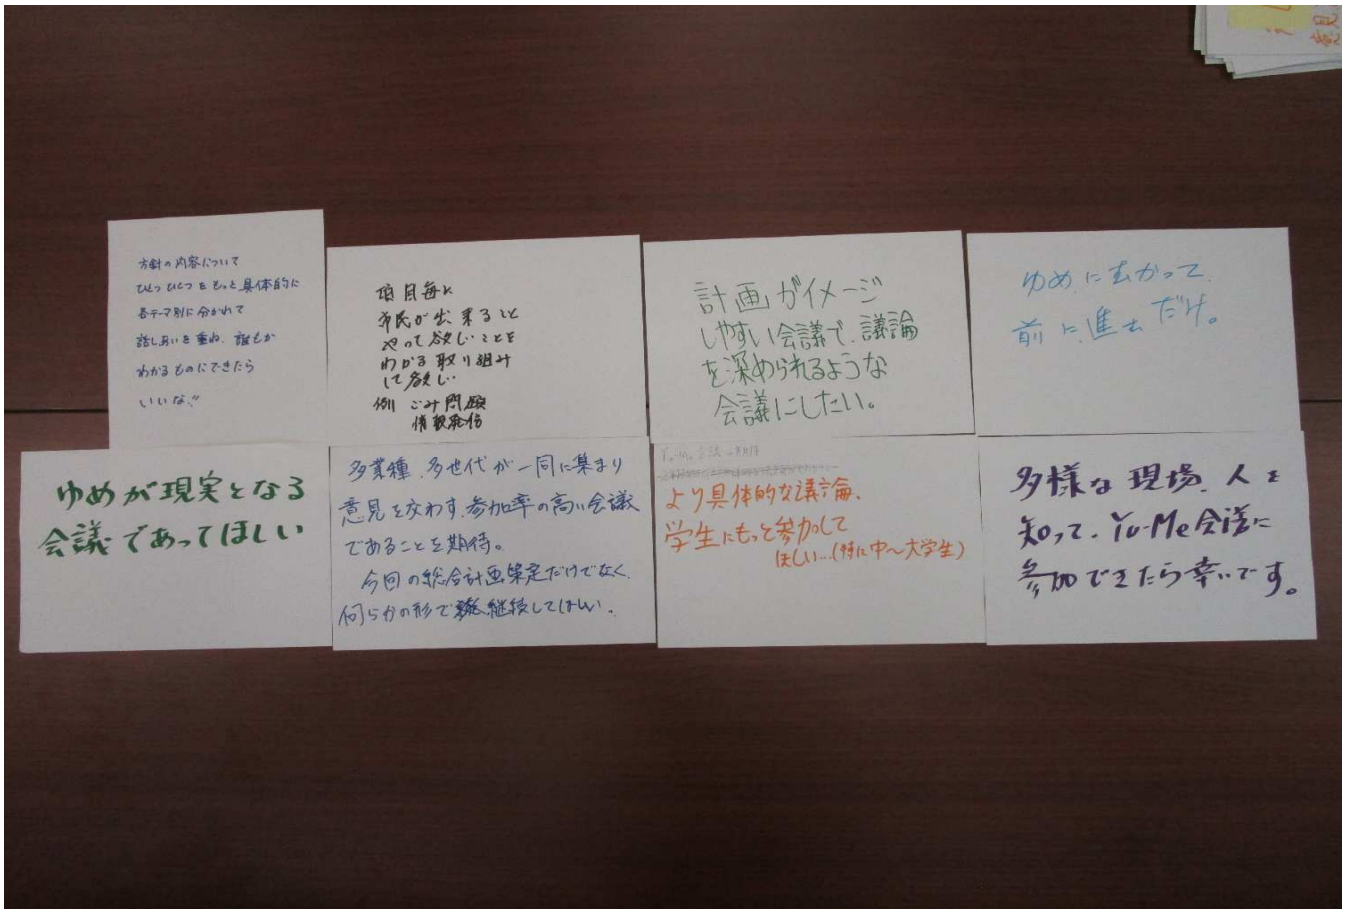 方針の内容について
ひとつひとつをもっと具体的に
各テーマ別に分かれて
話しあいを重ね、誰もが
わかるものにできたら
いいな!!
項目毎に
市民が出来ること
やって欲しいことを
わかる取り組み
して欲しい
例 ごみ問題
情報発信
計画がイメージ
しやすい会議で、議論
を深められるような
会議にしたい。
ゆめにむかって、
前に進むだけ。
ゆめが現実となる
会議であってほしい
多業種、多世代が一同に集まり
意見を交わす、参加率の高い会議
であることを期待。
今回の総合計画策定だけでなく、
何らかの形で継続してほしい。
より具体的な議論、
学生にもっと参加して
ほしい…(特に中〜大学生)
多様な現場、人を
知って、Yu-Me会議に
参加できたら幸いです。
意見